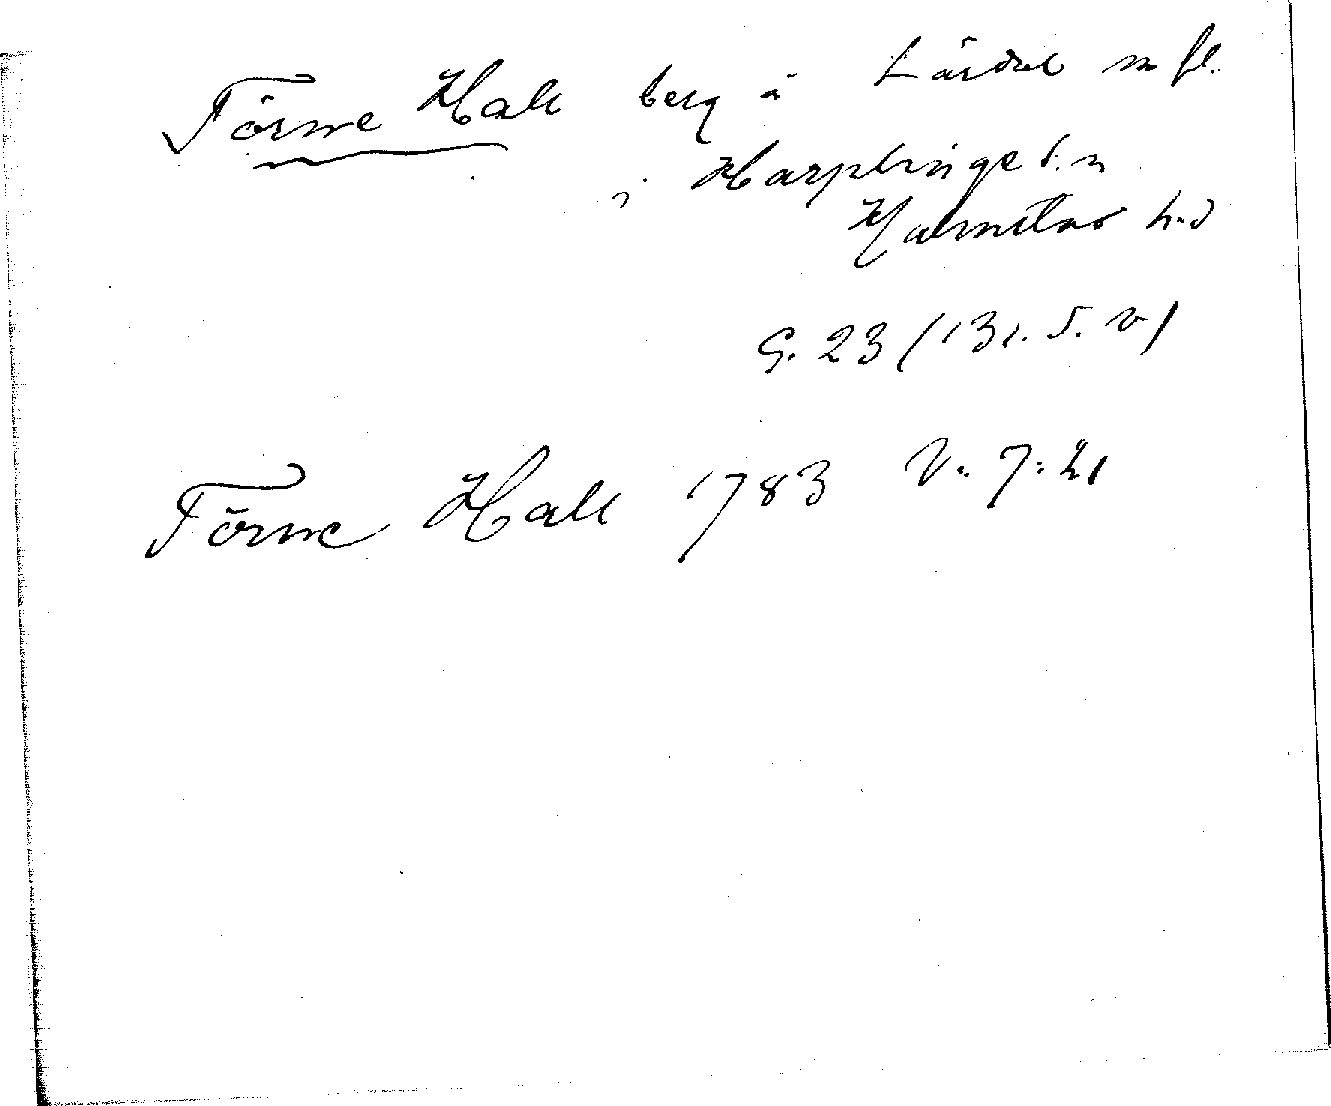 Törne Hall berg å Lårdal m fl.
i Harplinge s:n
Halmstad h:d
G. 23 (13 1. S. v)
Törne Hall 1783 V: 7: 21